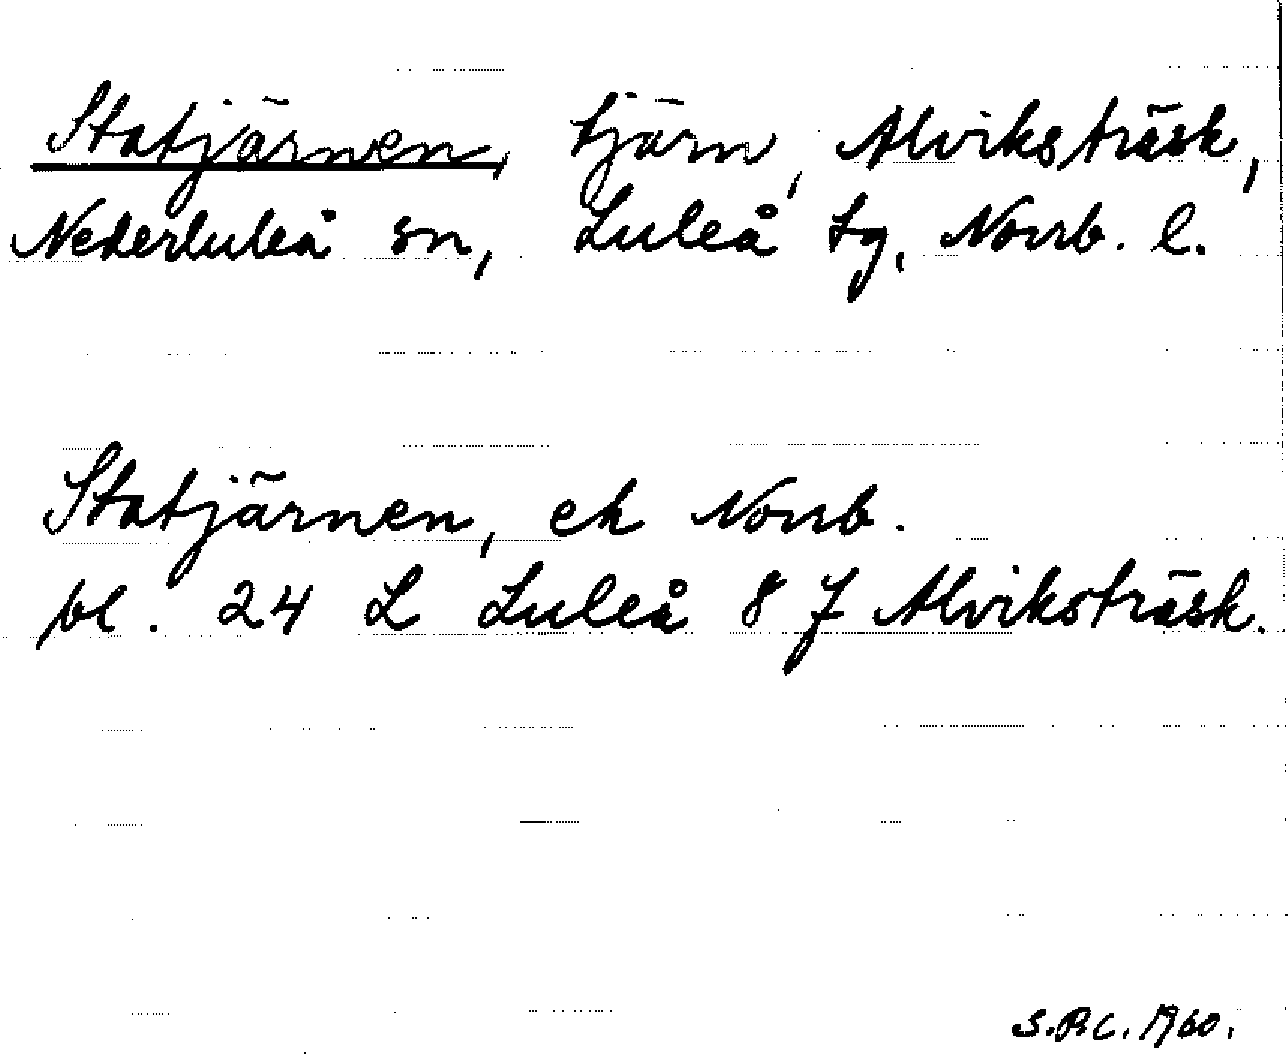 Statjärnen, tjärn, Alviksträsk,
Nederluleå sn, Luleå tg, Norrb. l.
Statjärnen, ek Norrb.
bl. 24 L Luleå 8 J Alviksträsk.
S.R.C. 1960.